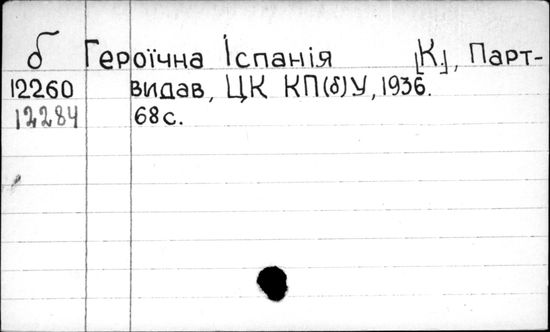 б Героїчна Іспанія [К.], Парт-
12260 видав, ЦК КП(б)У, 1936.
12284 68 с.